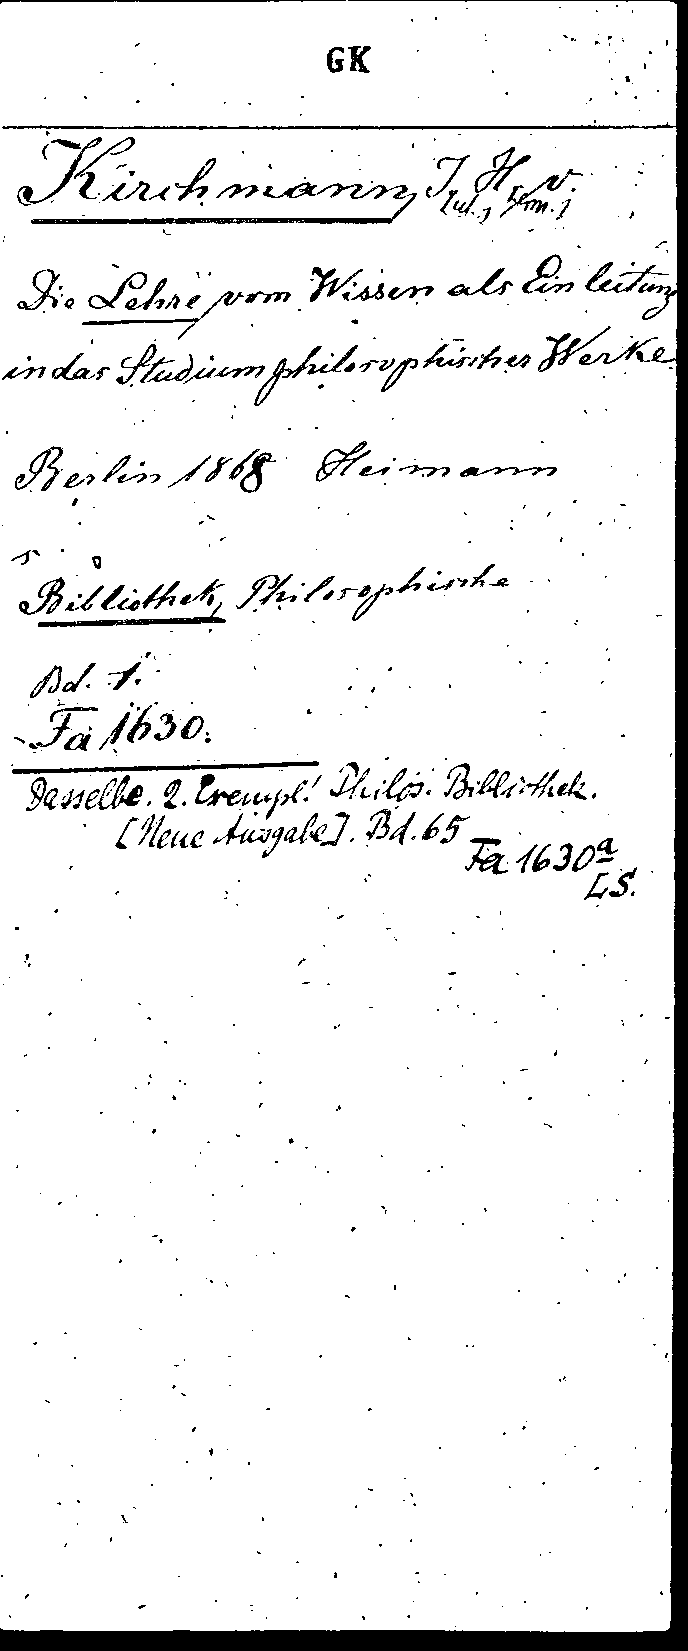 GK
Kirchmann, J. H. v.
[ul., erm.]
Die Lehre vom Wissen als Einleitung
in das Studium philosophischer Werke.
Berlin 1868 Heimann
Bibliothek, Philosophische
Bd. 1.
Fa 1630.
Dasselbe. 2. Exempl.! Philos. Bibliothek.
[Neue Ausgabe]. Bd. 65
Fa 1630a
LS.